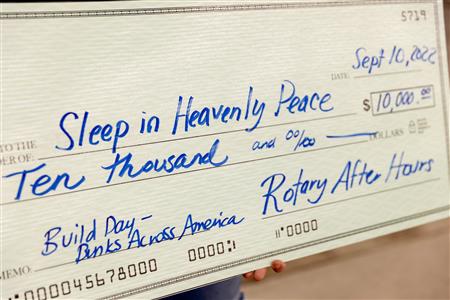 5719
DATE: Sept 10, 2022
TO THE
DER OF: Sleep in Heavenly Peace $10,000.00
Ten thousand and 00/100 DOLLARS
Build Day -
MEMO: Bunks Across America Rotary After Hours
⑆000045678000 0000⑈ ⑈0000